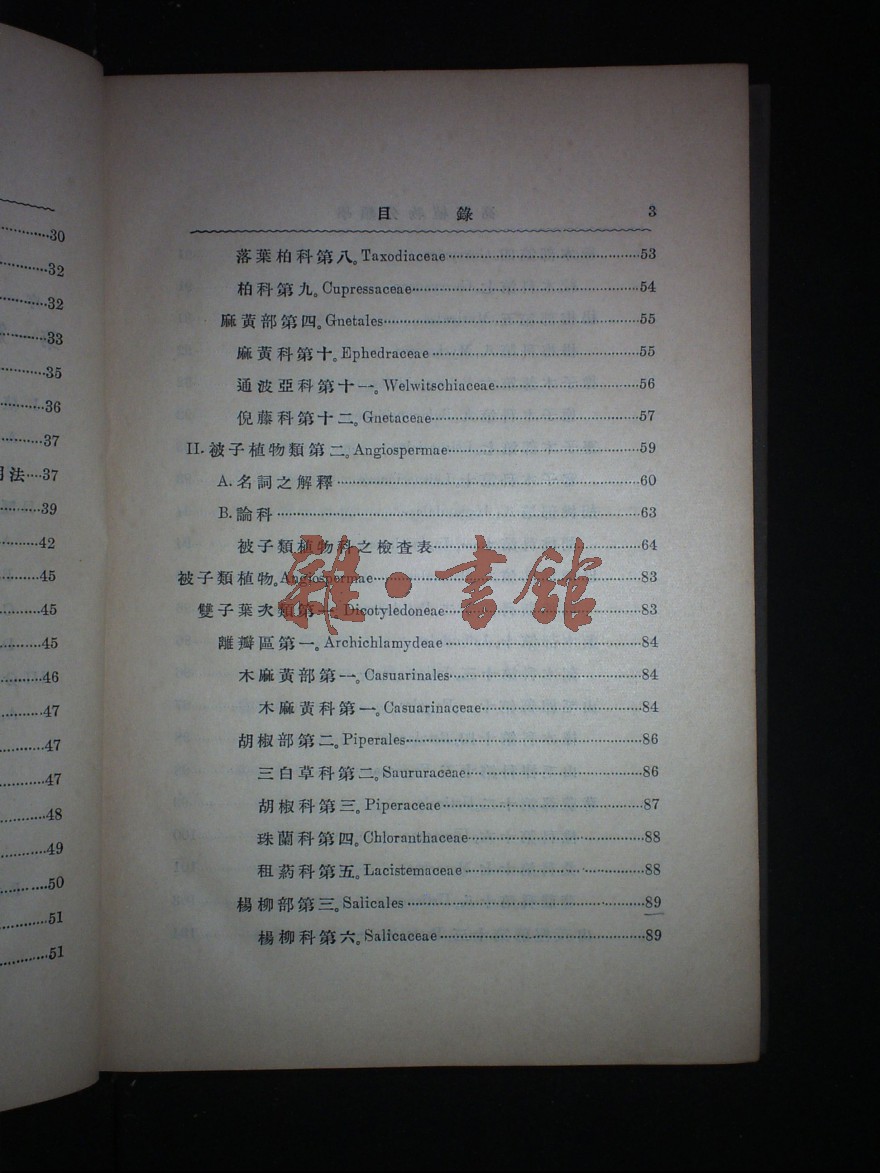 30
32
32
33
35
36
37
用法····37
39
42
45
45
45
46
47
47
47
48
49
50
51
51
目 錄 3
落葉柏科第八。Taxodiaceae 53
柏科第九。Cupressaceae 54
麻黃部第四。Gnetales 55
麻黃科第十。Ephedraceae 55
通波亞科第十一。Welwitschiaceae 56
倪藤科第十二。Gnetaceae 57
II. 被子植物類第二。Angiospermae 59
A. 名詞之解釋 60
B. 論科 63
被子類植物科之檢查表 64
被子類植物。Angiospermae 83
雙子葉次類第一。Dicotyledoneae 83
離瓣區第一。Archichlamydeae 84
木麻黃部第一。Casuarinales 84
木麻黃科第一。Casuarinaceae 84
胡椒部第二。Piperales 86
三白草科第二。Saururaceae 86
胡椒科第三。Piperaceae 87
珠蘭科第四。Chloranthaceae 88
租葯科第五。Lacistemaceae 88
楊柳部第三。Salicales 89
楊柳科第六。Salicaceae 89
雜·書館